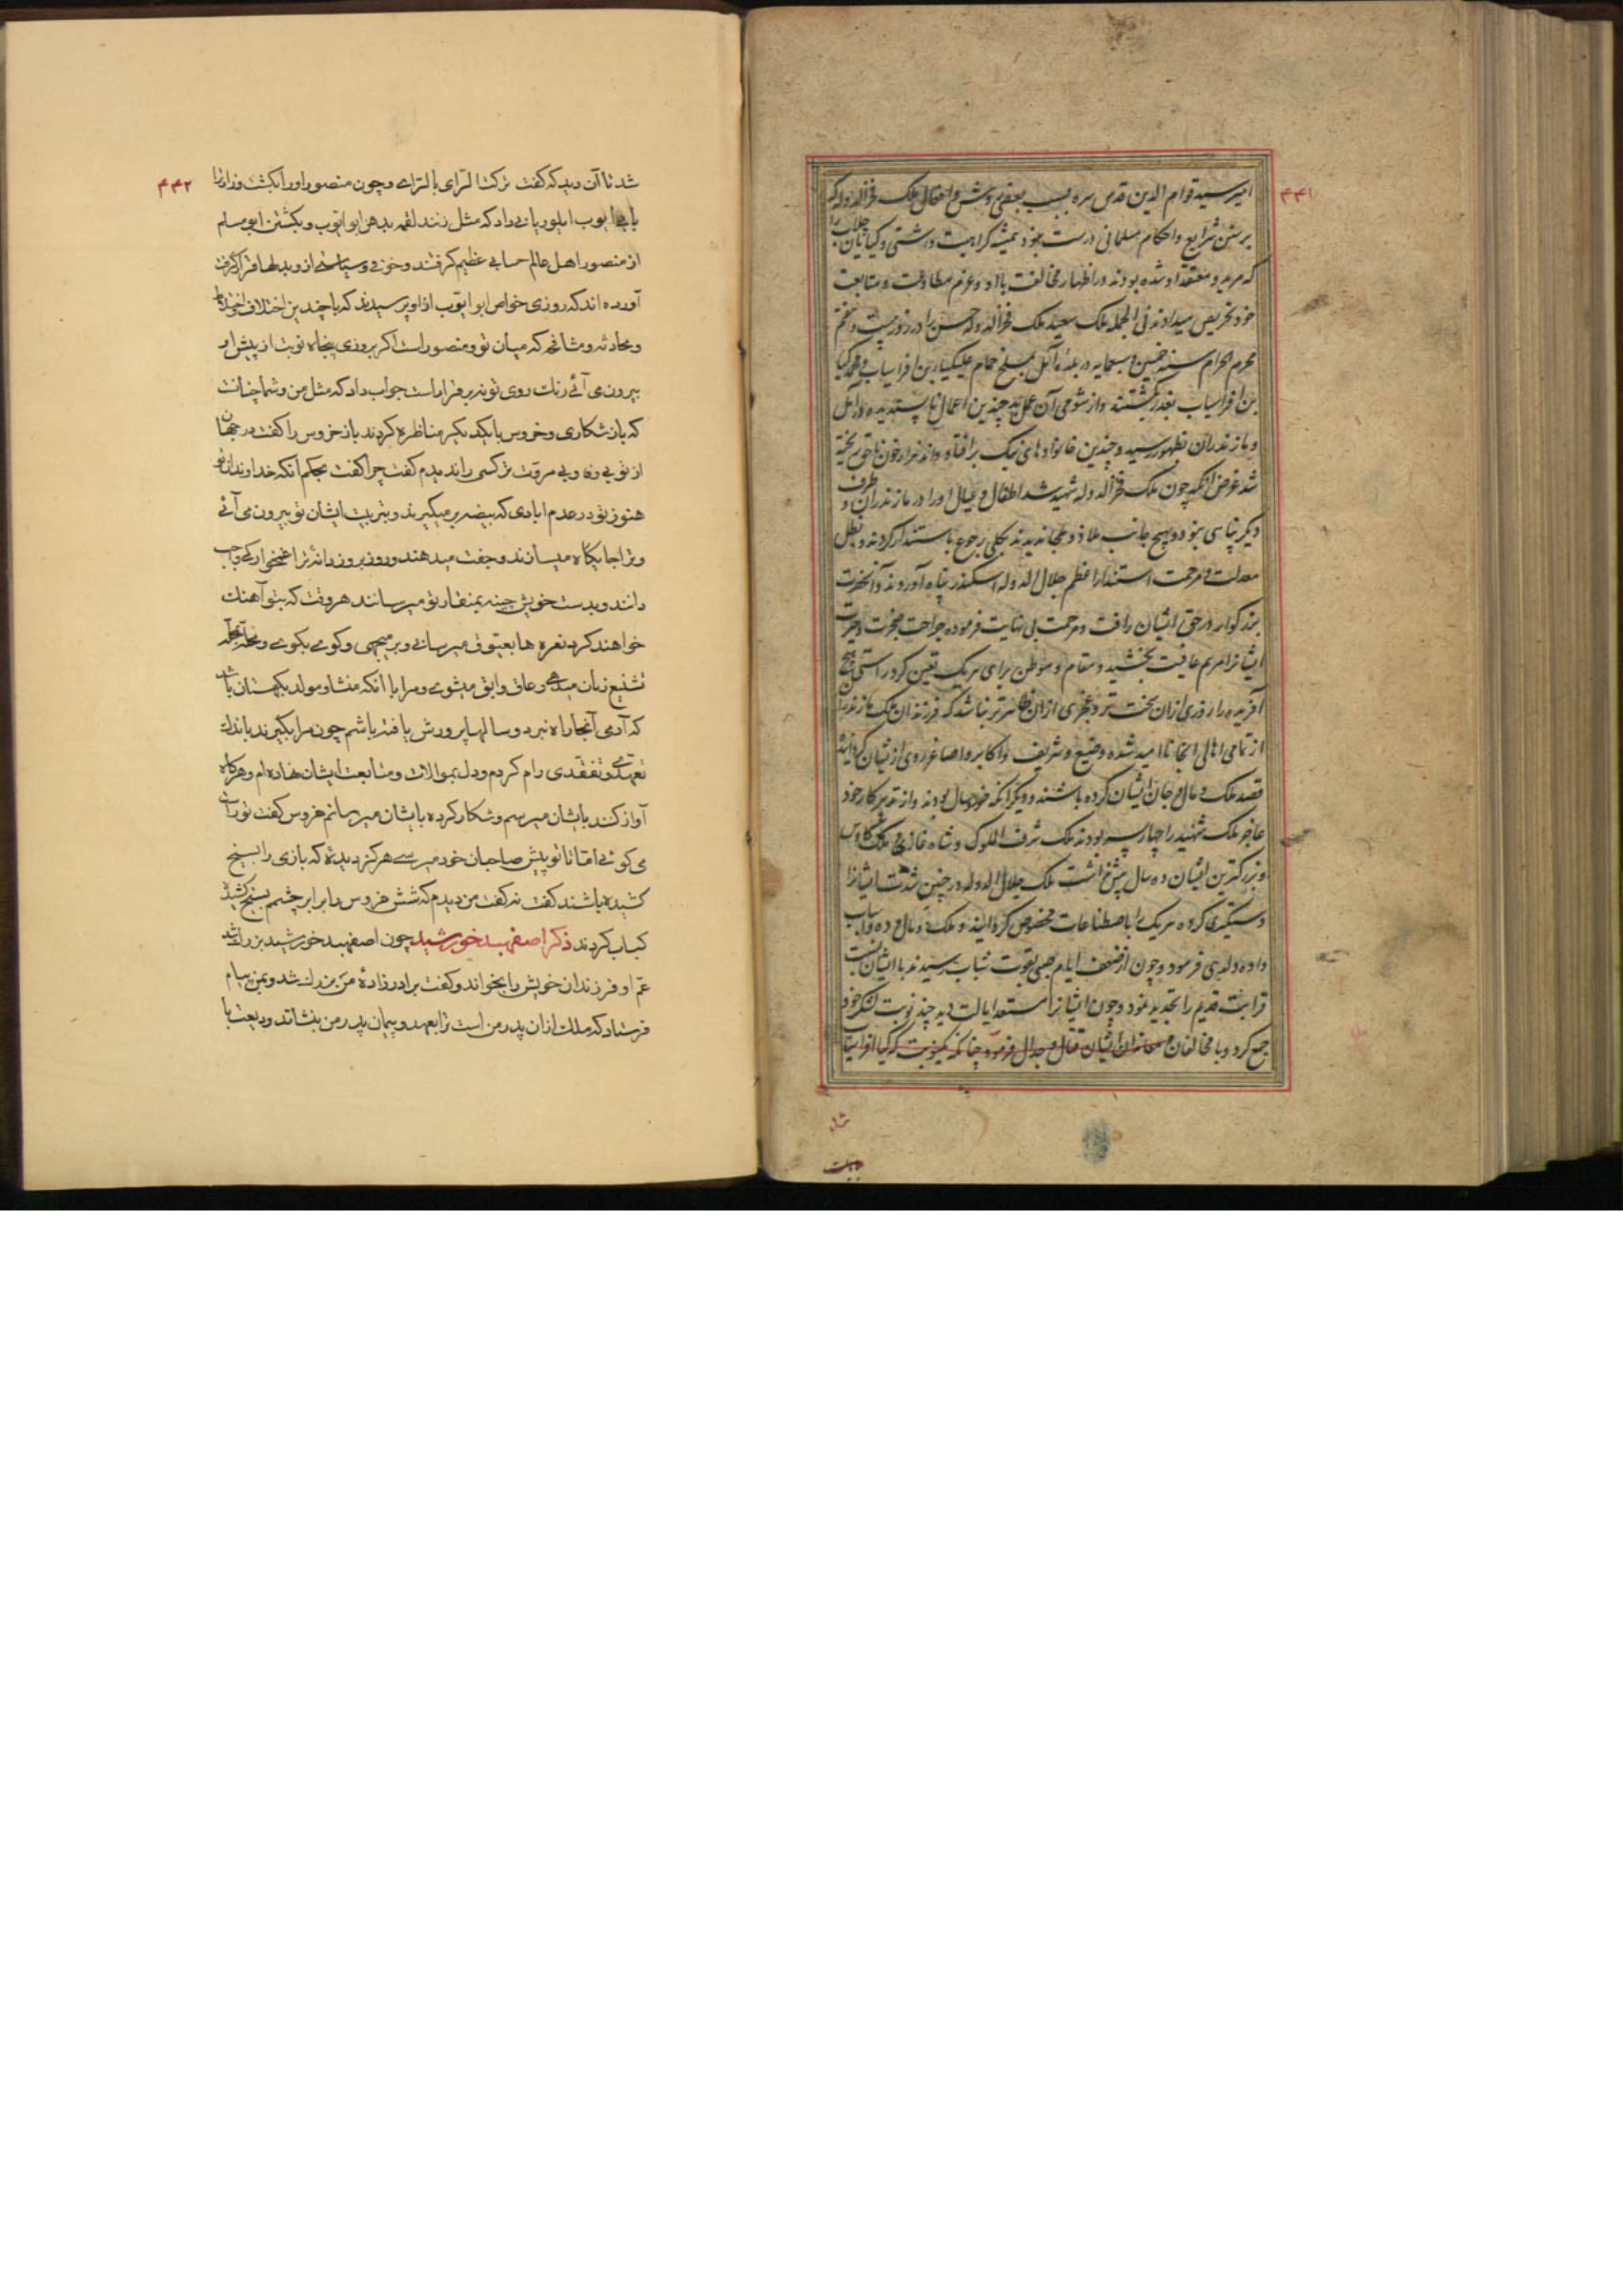 ۴۴۱
امیر سید قوام الدین قدس سره بسبب بعضی روش و افعال ملک فخرالدوله که
بر سنن شرایع و احکام مسلمانی درست نبود همیشه کراهیت داشتی و کیایان جلاب را
که مرید و معتقد او شده بودند در اظهار مخالفت با او و عزم مطاوعت و متابعت
خود تحریض میدادند فی الجمله ملک سعید ملک فخرالدوله حسن را در روز بیست و هفتم
محرم الحرام سنه خمسین و سبعمایه در بلده آمل بمسلخ حمام علی کیا بن افراسیاب و محمد کیا
بن افراسیاب بغدر بکشتند و از شومی آن عمل بد چندین اعمال ناپسندیده در آمل
و مازندران بظهور رسید و چندین خانواده‌های نیک برافتاد و اند هزار خون ناحق ریخته
شد غرض آنکه چون ملک فخرالدوله شهید شد اطفال و عیال او را در مازندران و طرف
دیگر پناهی نبود و بهیچ جانب ملاذ و ملجا ندیدند بکلی رجوع باستندار کردند و بظل
معدلت و مرحمت استندار اعظم جلال الدوله اسکندر پناه آوردند و آنحضرت
بزرگوار در حق ایشان رافت و مرحمت بی نهایت فرموده جراحت
ایشانرا مرهم عافیت بخشید و مقام و موطن برای هریک تعیین کرد راستی هیچ
آفریده را روزی ازان سخت تر و عجزی ازان ظاهرتر نباشد که فرزندان ملک مازندران
از تمامی اهالی انجا ناامید شده وضیع و شریف و اکابر و اصاغر روی ازیشان گردانیده
قصد ملک و مال و جان ایشان کرده باشند و دیگر آنکه خورد سال بودند و از تدبیر کار خود
عاجز ملک شهید را چهار پسر بودند ملک شرف الملوک و شاه غازی و ملک کاوس
و بزرگترین ایشان ده سال بیش نداشت ملک جلال الدوله در چنین شدت ایشانرا
دستگیری کرده هریک را باصطناعات مخصوص گردانید و ملک و مال و ده و اسباب
داده دلدهی فرمود و چون از ضعف ایام صبی بقوت شباب رسیدند با ایشان نسبت
قرابت قدیم را تجدید نمود و چون ایشانرا مستعد ایالت دید چند نوبت لشکر خود
جمع کرد و با مخالفان و معاندان ایشان قتال و جدال فرمود چنانکه یکنوبت که کیا افراسیاب
۴۴۲
شد تا آن دید که گفت ترکت الرای بالرای و چون منصور او را بکشت وزارت
بابی ایوب المورياني داد که مثل زنند لقمه بدهن ابو ایوب و بکشتن ابو مسلم
از منصور اهل عالم حسابی عظیم گرفتند و خوفی و سیاستی ازو بدلها قرار گرفت
آورده اند که روزی خواص ابو ایوب ازاو پرسیدند که با چندین اختلاف
و محادثه و مثافنه که میان تو و منصور است اگر بروزی پنجاه نوبت از پیش او
بیرون می آئی رنک روی تو نه برقرار است جواب داد که مثل من و شما چنانست
که باز شکاری و خروس با یکدیگر مناظره کردند باز خروس را گفت در جهان
از تو بی وفا و بی مروت تر کسی را ندیدم گفت چرا گفت بحکم آنکه خداوندان تو
هنوز تو در عدم ابادی که بیضه بر میگیرند و بتربیت ایشان تو بیرون می آئی
و ترا جایگاه میسازند و جفت میدهند و روز بروز دانه ترا غمخوارگی واجب
دانند و بدست خویش چینه بمنقار تو میرسانند هر وقت که بتو آهنک
خواهند کرد نعره ها بعیوق میرسانی و بر میجهی و کوی بکوی و محله بمحله
تشنیع زنان میدهی و عاق و ابق میشوی و مرا با آنکه منشا و مولد بکهستان باشد
که آدمی آنجا راه نبرد و سالها پرورش یافته باشم چون مرا بگیرند باندک
تعهدی و تفقدی رام گردم و دل بموالات و متابعت ایشان نهاده ام و هرگاه
آواز کنند بایشان میرسم و شکار کرده بایشان میرسانم خروس گفت تو راست
می گوئی اما تا تو پیش صاحبان خود میرسی هرگز دیده که بازی را بسیخ
کشیده باشند گفت نه گفت من دیدم که شش خروس را برابر چشم بسیخ کشید
کباب کردند ذکر اصفهبد خورشید چون اصفهبد خورشید بزرک شد
عم او فرزندان خویش را بخواند و گفت برادرزاده من بزرک شد و بمن پیام
فرستاد که ملک ازان پدر من است ترا بعهد و پیمان پدر من بنشاند و دیعت با